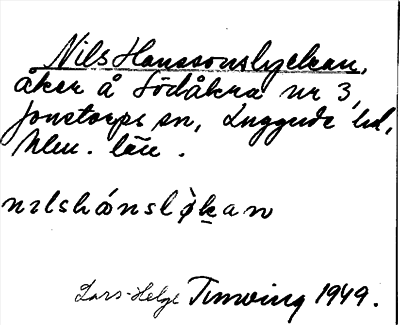 Nils Hanssonslyckan,
åker å Södåkra nr 3,
Jonstorps sn, Luggude hd,
Mlm. län.
nılshånslø̀kan
Lars-Helge Tunving 1949.